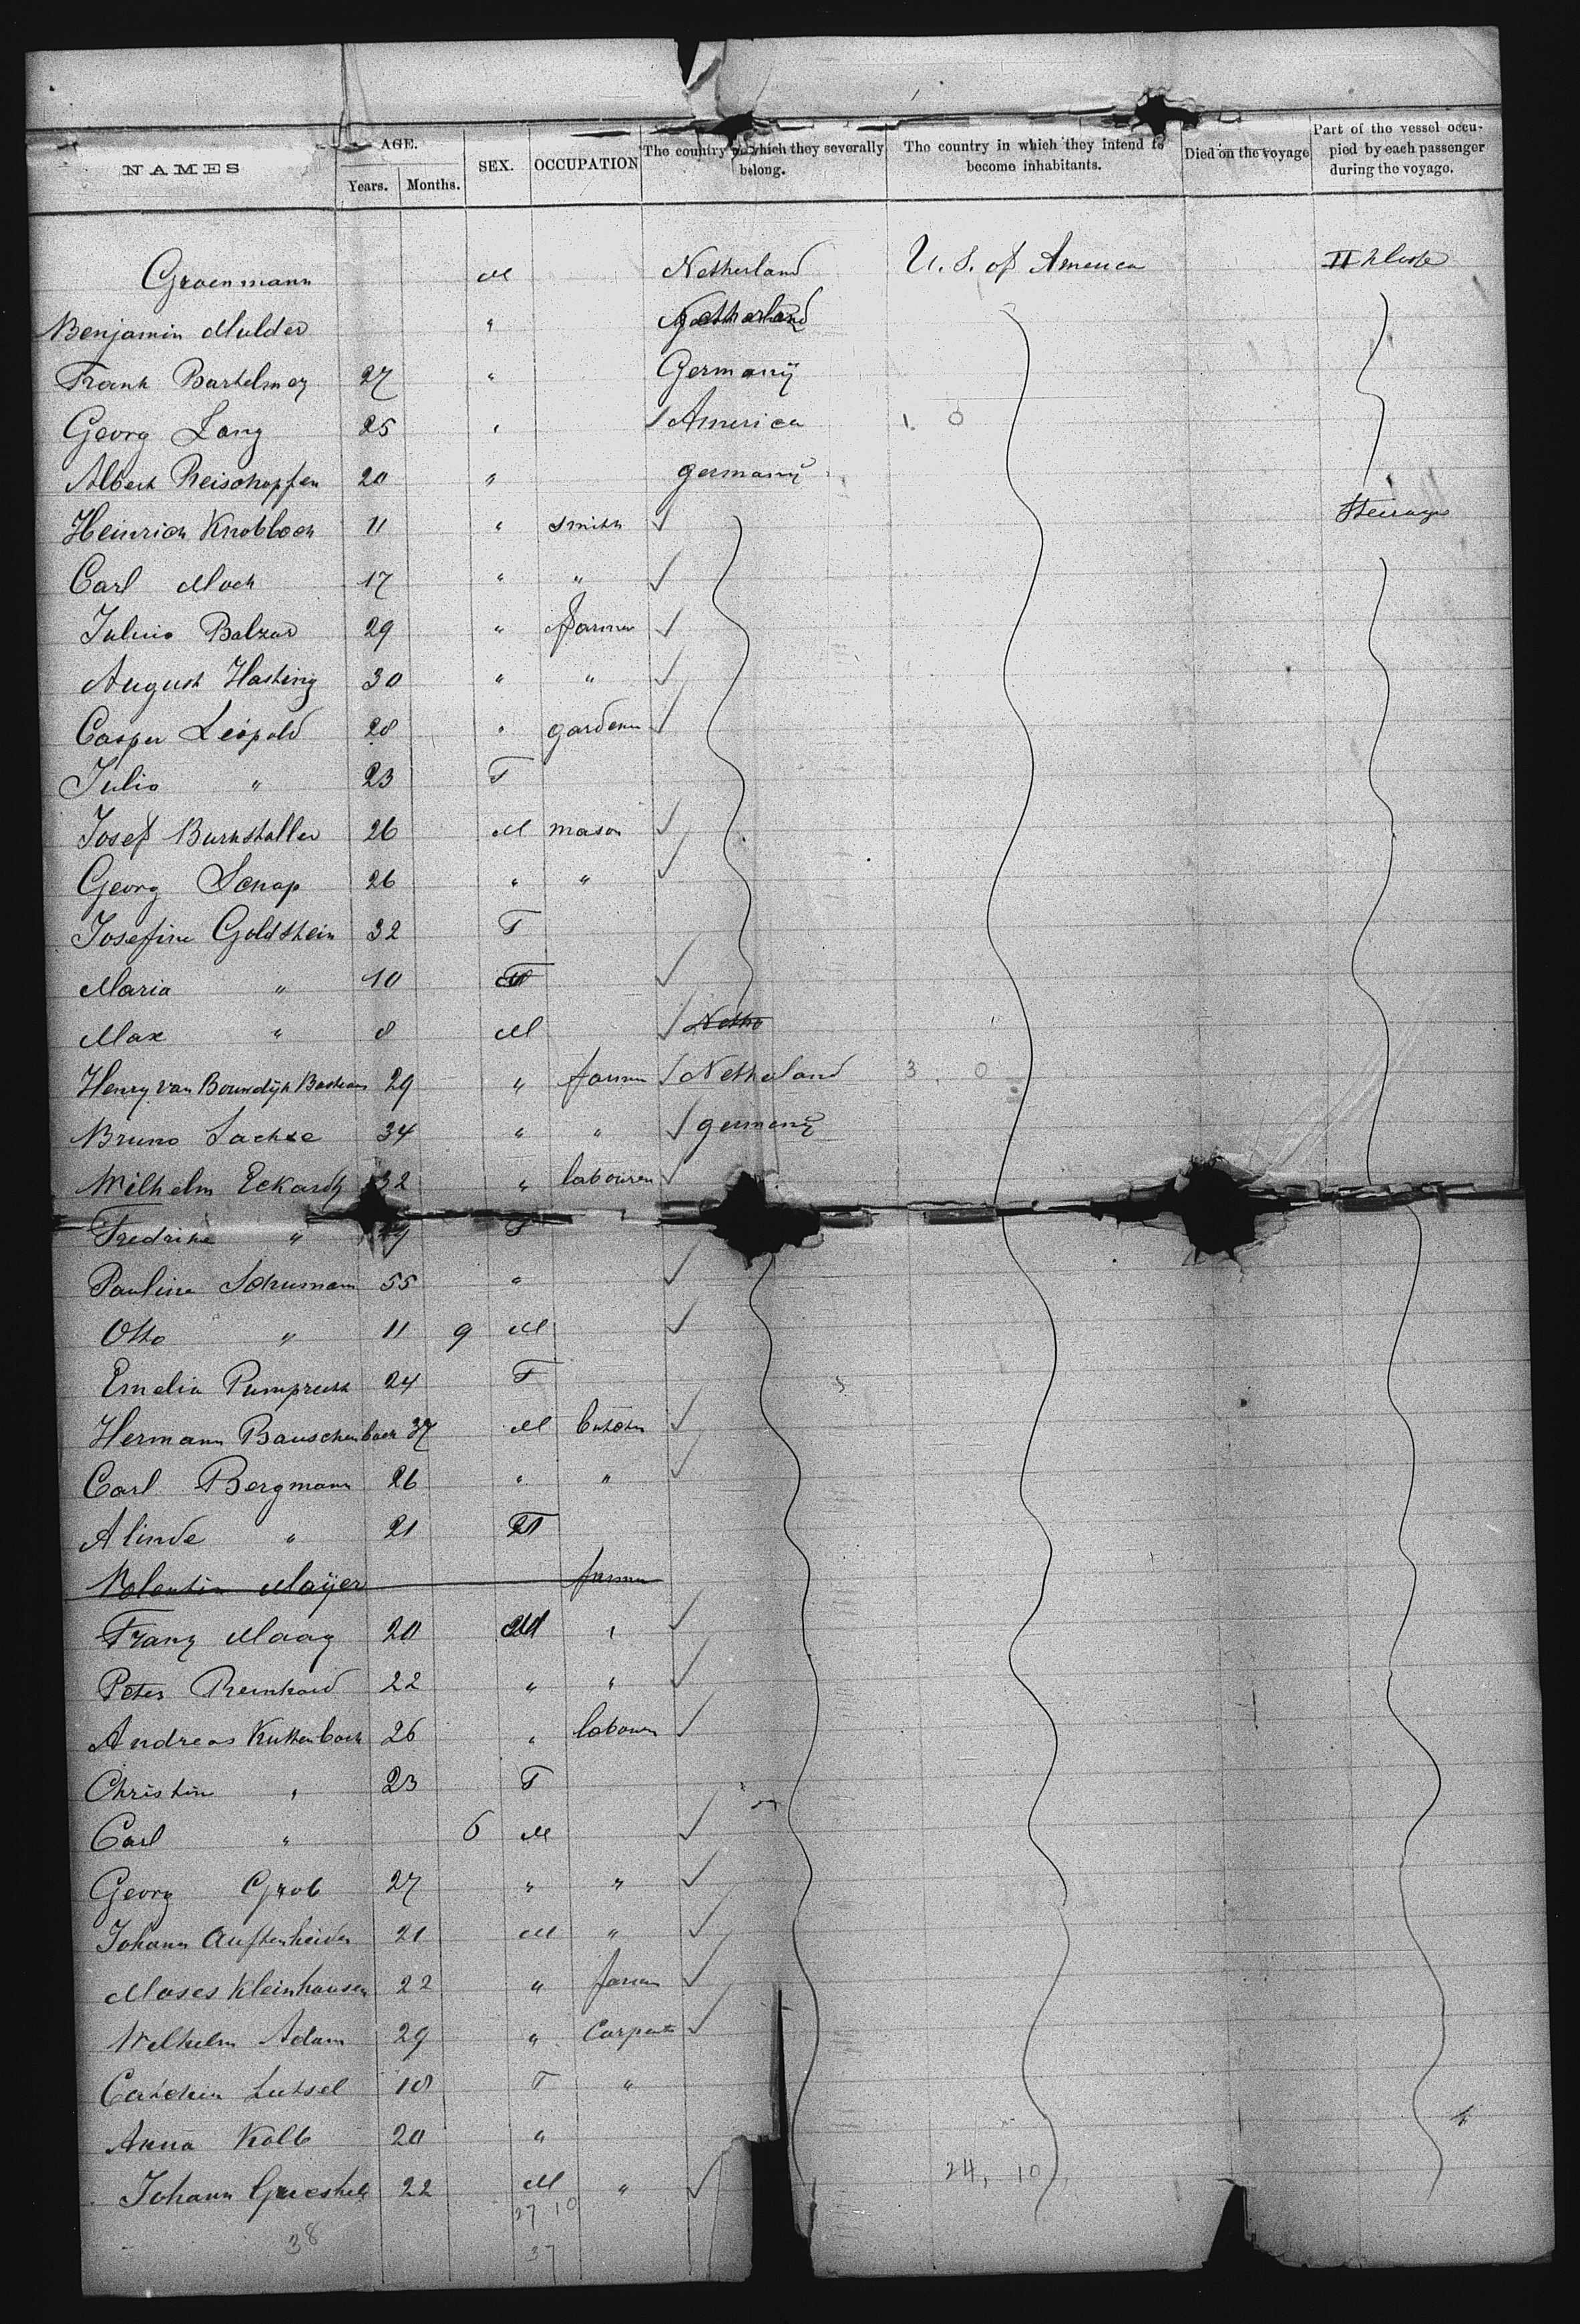 NAMES AGE. Years. Months. SEX. OCCUPATION The country to which they severally belong. The country in which they intend to become inhabitants. Died on the voyage Part of the vessel occupied by each passenger during the voyage.
Groenmann M Netherland U. S. of America II
Benjamin Mulder " Netherland
Frank Barthelmez 27 " Germany
Georg Lang 25 " / America 1. 0
Albert Reischopfen 20 " germany
Heinrich Knobloch 11 " smith ✓ Steerage
Carl Moch 17 " " ✓
Julius Balzar 29 " farmer ✓
August Hasting 30 " " ✓
Casper Leopold 28 " gardener ✓
Julia " 23 F
Josef Burkstaller 26 M mason ✓
Georg Schap 26 " " ✓
Josefine Goldstein 32 F
Maria " 10 F ✓
Max " 8 M / Nethe
Henry van Bourndijk 29 " farmer / Netherland 3. 0
Bruno Sachse 34 " " / germany
Wilhelm Eckardt 32 " labourer ✓
Fredrike " F
Pauline Schumann 55 " ✓
Otto " 11 9 M ✓
Emelia 24 F
Hermann Bauschenbach 37 M butcher ✓
Carl Bergmann 26 " " ✓
Alinde " 21 F
Valentin Mayer farmer
Franz Maag 20 M " ✓
Peter Reinhard 22 " " ✓
Andreas Kuttenbach 26 " labourer ✓
Christin " 23 F
Carl " 6 M ✓
Georg Grob 27 " " ✓
Johann Auftenheider 21 M " ✓
Moses Kleinhausen 22 " farmer ✓
Wilhelm Adam 29 " Carpent ✓
Cathrin Lutsel 18 F "
Anna Kolb 20 "
Johann 22 M " ✓ 24, 10
27 10
38
37